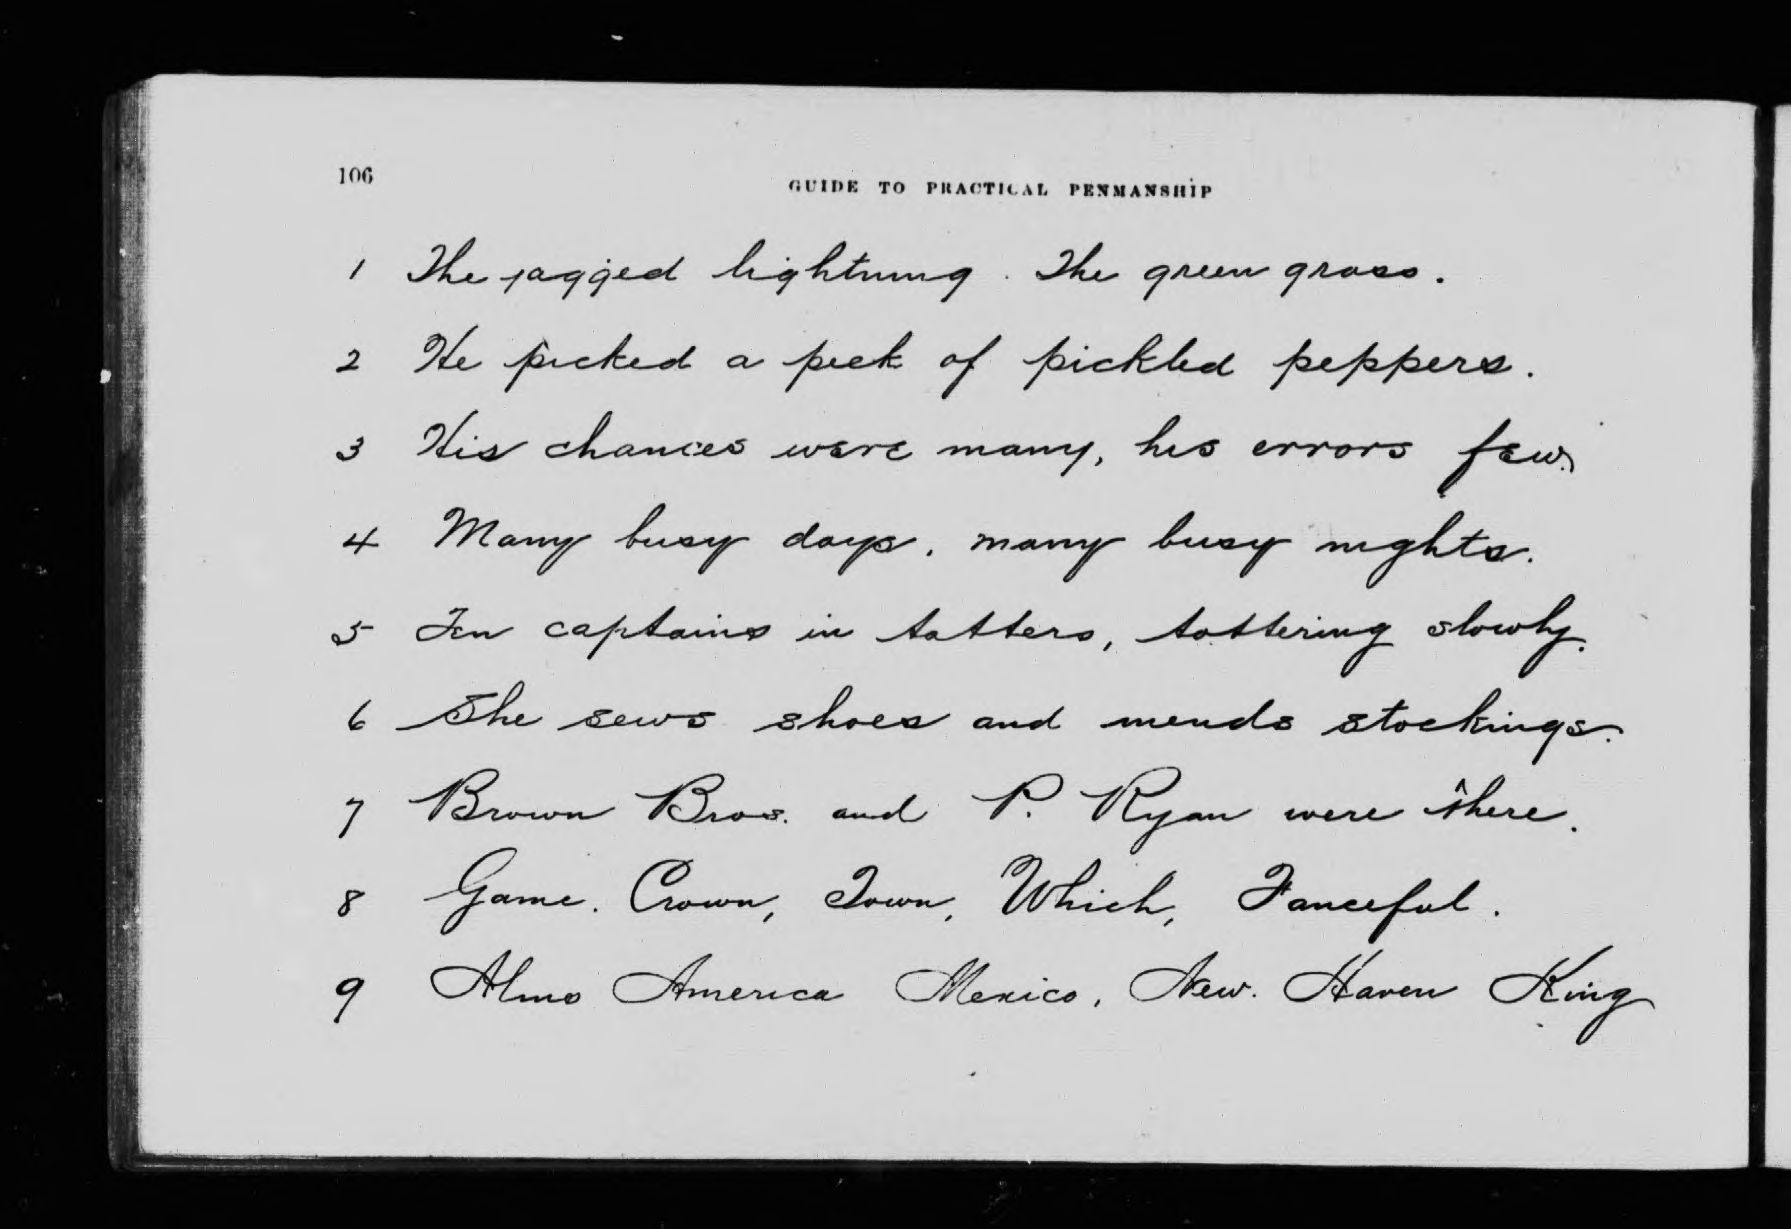 106
GUIDE TO PRACTICAL PENMANSHIP
1 The jagged lightning. The green grass.
2 He picked a peck of pickled peppers.
3 His chances were many, his errors few.
4 Many busy days, many busy nights.
5 Ten captains in tatters, tottering slowly.
6 She sews shoes and mends stockings.
7 Brown Bros. and P. Ryan were there.
8 Game. Crown, Town, Which, Fanceful.
9 America Mexico, New. Haven King